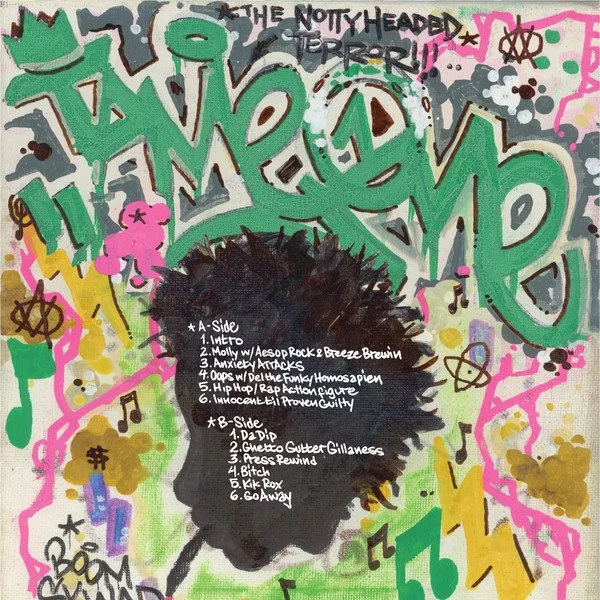 *THE NOTTYHEADED*
TERROR!!!
TAME ONE
$
*A-Side
1. Intro
2. Molly w/ Aesop Rock & Breeze Brewin
3. Anxiety Attacks
4. Oops w/ Del the Funky Homosapien
5. Hip Hop/Rap Action figure
6. Innocent til Proven Guilty
*B-Side
1. Da Dip
2. Ghetto Gutter Gillaness
3. Press Rewind
4. Bitch
5. Kik Rox
6. Go Away
*
BOOM
SKWAD